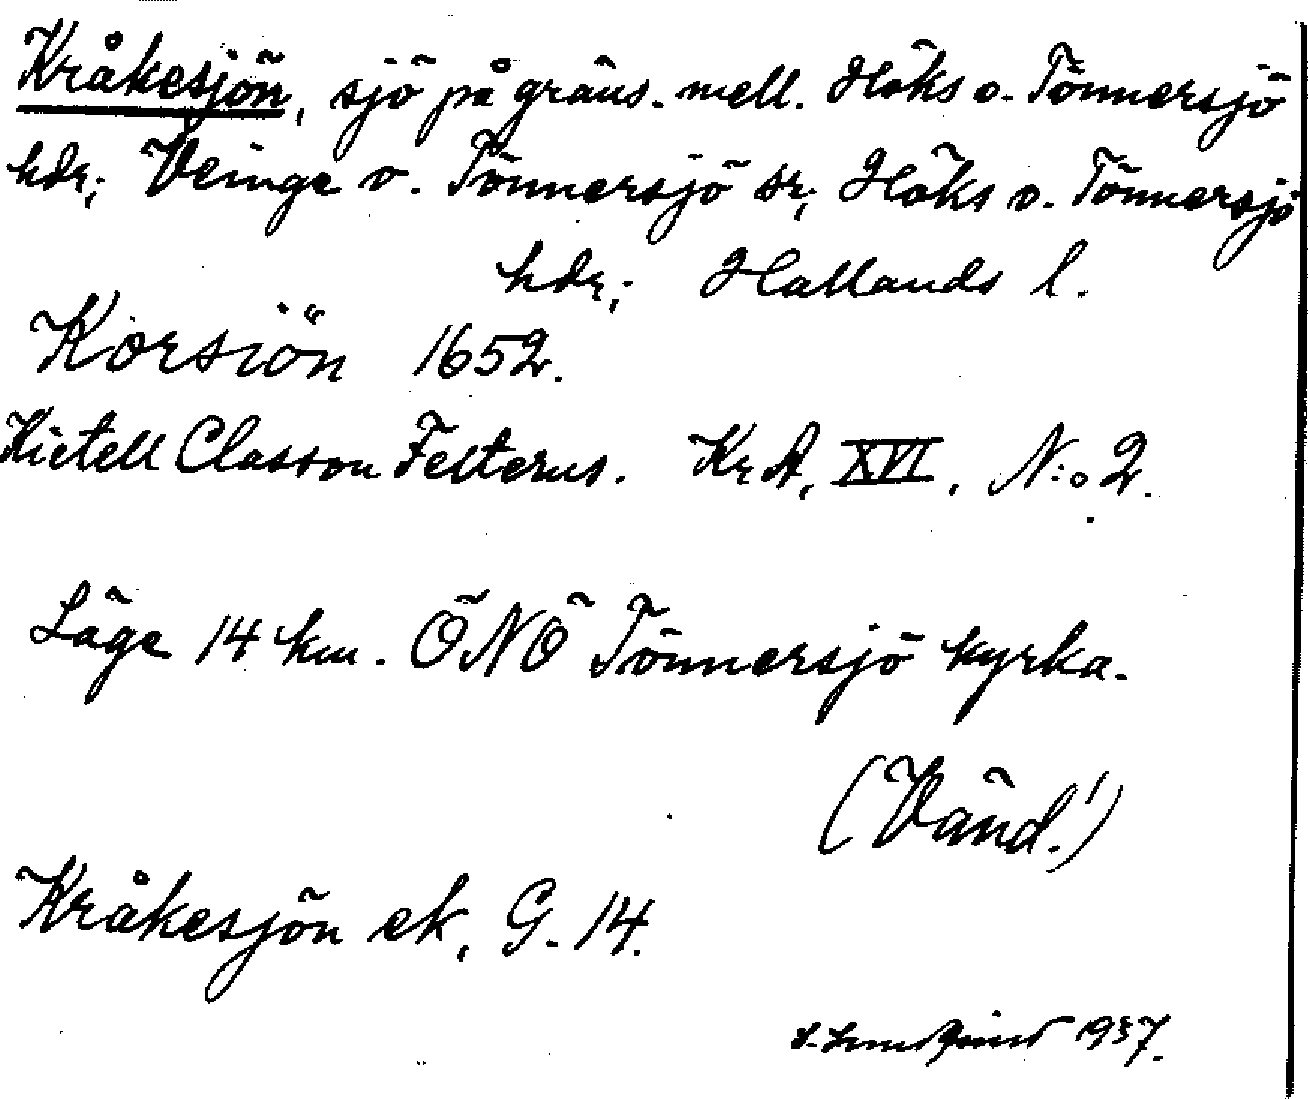 Kråkesjön, sjö på gräns. mell. Höks o. Tönnersjö
hdr; Veinge o. Tönnersjö sr; Höks o. Tönnersjö
hdr; Hallands l.
Korsiön 1652.
Kietell Classon Felterus. Kr A, XVI, N:o 2.
Läge 14 km. ÖNÖ Tönnersjö kyrka.
(Vänd!)
Kråkesjön ek, G. 14.
1937.